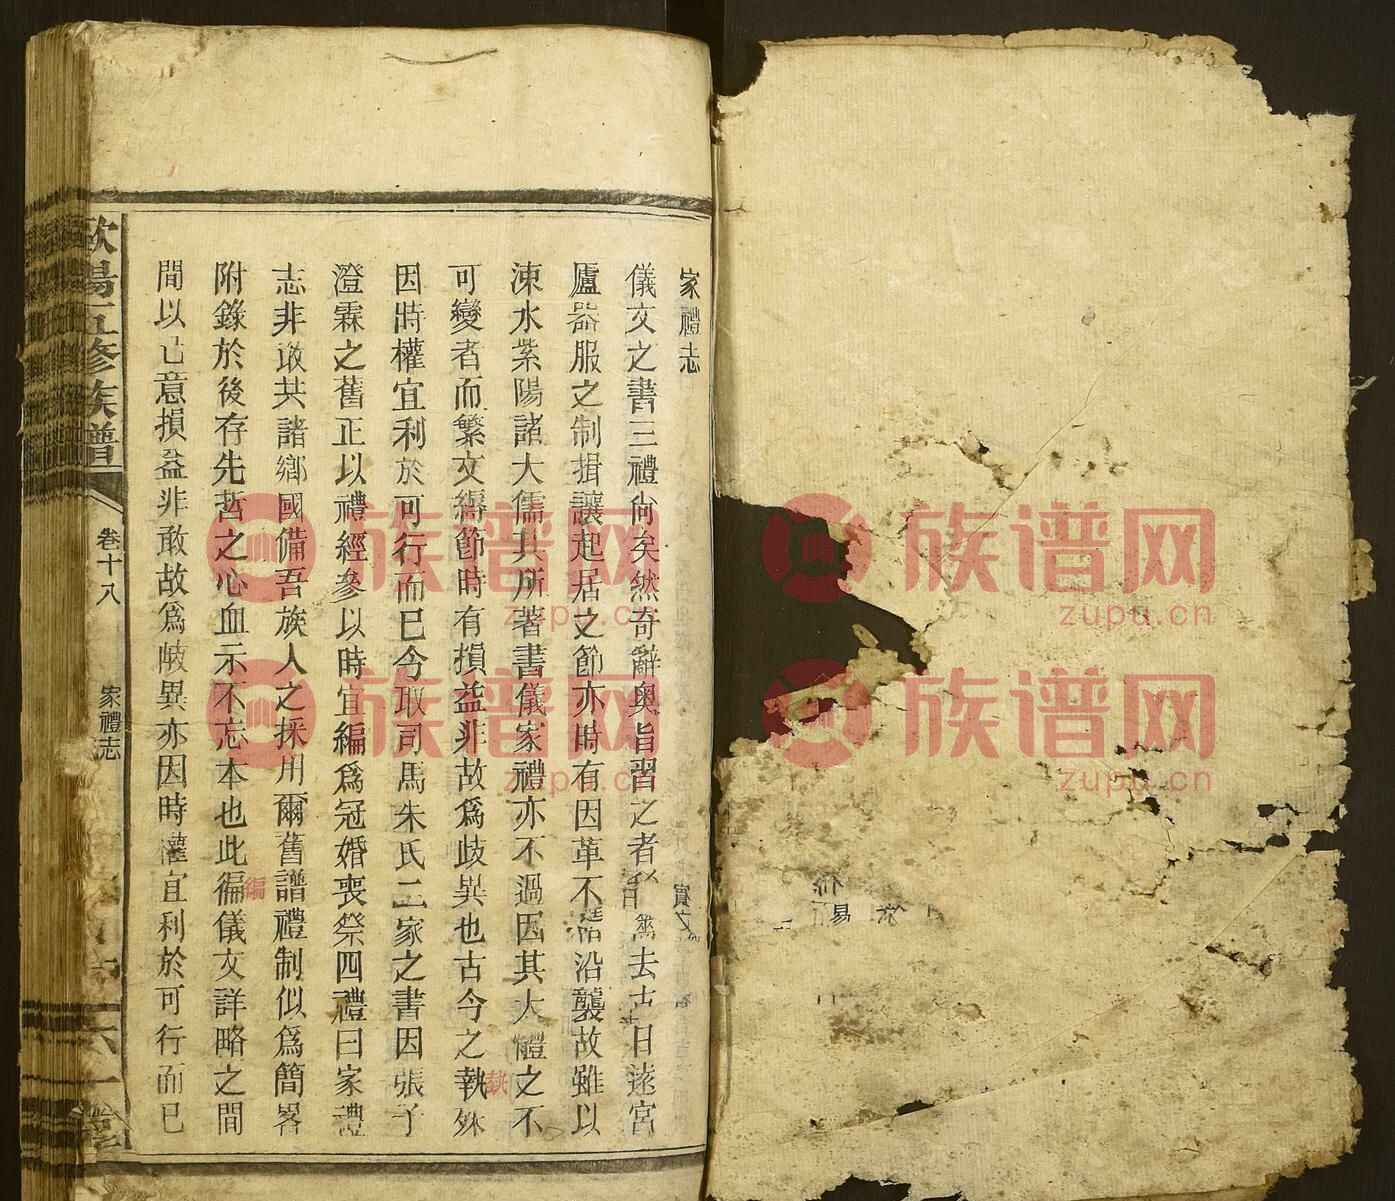 家禮志
儀文之書三禮尙矣然奇辭奥旨習之者以爲去古日遠宮
廬器服之制揖讓起居之節亦時有因革不沿襲故雖以
涑水紫陽諸大儒其所著書儀家禮亦不過因其大體之不
可變者而繁文縟節時有損益非故爲歧異也古今之執殊
因時權宜利於可行而已今取司馬朱氏二家之書因張子
澄霖之舊正以禮經參以時宜編爲冠婚喪祭四禮曰家禮
志非敢共諸鄉國備吾族人之採用爾舊譜禮制似爲簡畧
附錄於後存先哲之心血示不忘本也此徧儀文詳略之間
間以己意損益非敢故爲歧異亦因時權宜利於可行而已
編
埶
歐陽五修族譜
卷十八
家禮志
六一堂
族谱网
zupu.cn
族谱网
zupu.cn
族谱网
zupu.cn
族谱网
zupu.cn